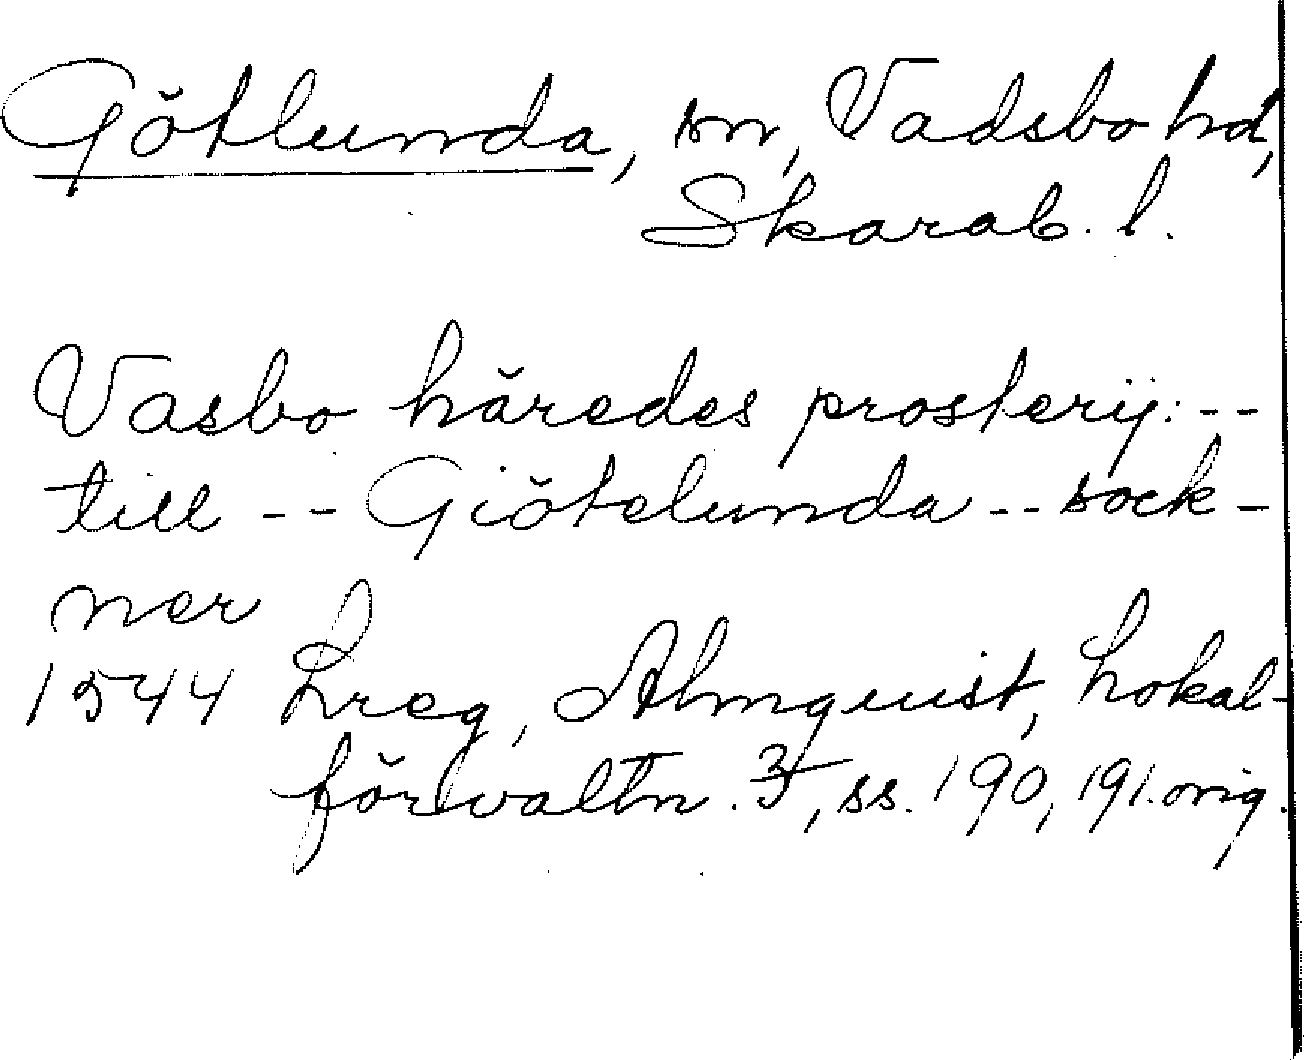 Götlunda, sn, Vadsbo hd,
Skarab. l.
Vasbo häredes prosterij: --
till -- Giötelunda -- sock-
ner
1544 Lreg, Almquist, Lokal-
förvaltn. 3, ss. 190, 191. orig.